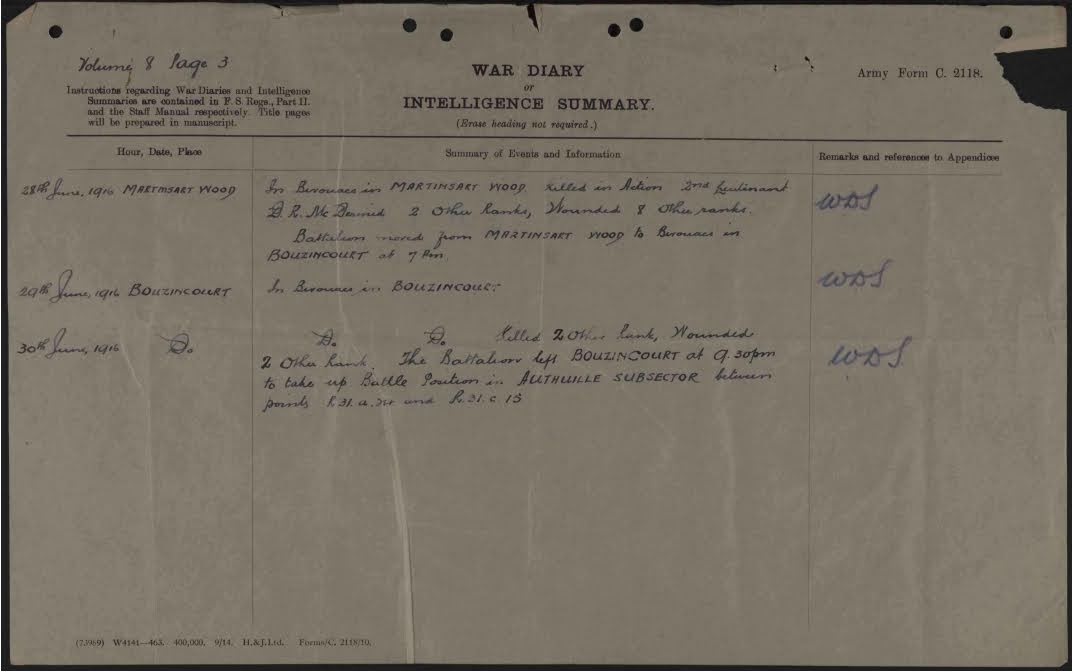 Volume 8 Page 3
WAR DIARY
or
INTELLIGENCE SUMMARY.
(Erase heading not required.)
Army Form C. 2118.
Instructions regarding War Diaries and Intelligence
Summaries are contained in F. S. Regs., Part II.
and the Staff Manual respectively. Title pages
will be prepared in manuscript.
Hour, Date, Place
Summary of Events and Information
Remarks and references to Appendices
28th June, 1916 MARTINSART WOOD
In Bivouacs in MARTINSART WOOD killed in Action 2nd Lieutenant
D. R. 2 Other Ranks, Wounded 8 Other ranks.
Battalion moved from MARTINSART WOOD to Bivouacs in
BOUZINCOURT at 7 Pm.
WDS
29th June, 1916 BOUZINCOURT
In Bivouacs in BOUZINCOURT
WDS
30th June, 1916 Do.
Do. Do. Killed 2 Other Rank, Wounded
2 Other Rank. The Battalion left BOUZINCOURT at 9.30pm
to take up Battle Position in AUTHUILLE SUBSECTOR between
points and R.31.c 15
WDS.
(73989) W4141—463. 400,000. 9/14. H.&J.Ltd. Forms/C. 2118/10.